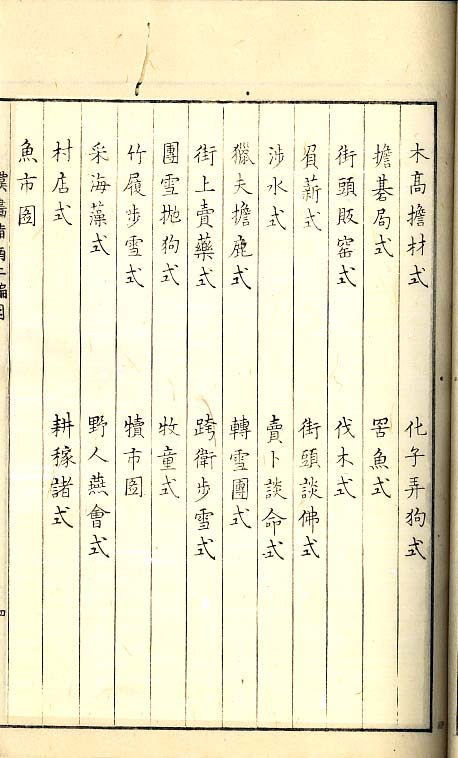 木髙擔材式
化子弄狗式
擔碁局式
罟魚式
街頭販窑式
伐木式
負薪式
街頭談佛式
涉水式
賣卜談命式
獵夫擔鹿式
轉雪團式
街上賣藥式
跨衛步雪式
團雪拋狗式
牧童式
竹履步雪式
犢市圖
采海藻式
野人燕會式
村店式
耕稼諸式
魚市圖
四